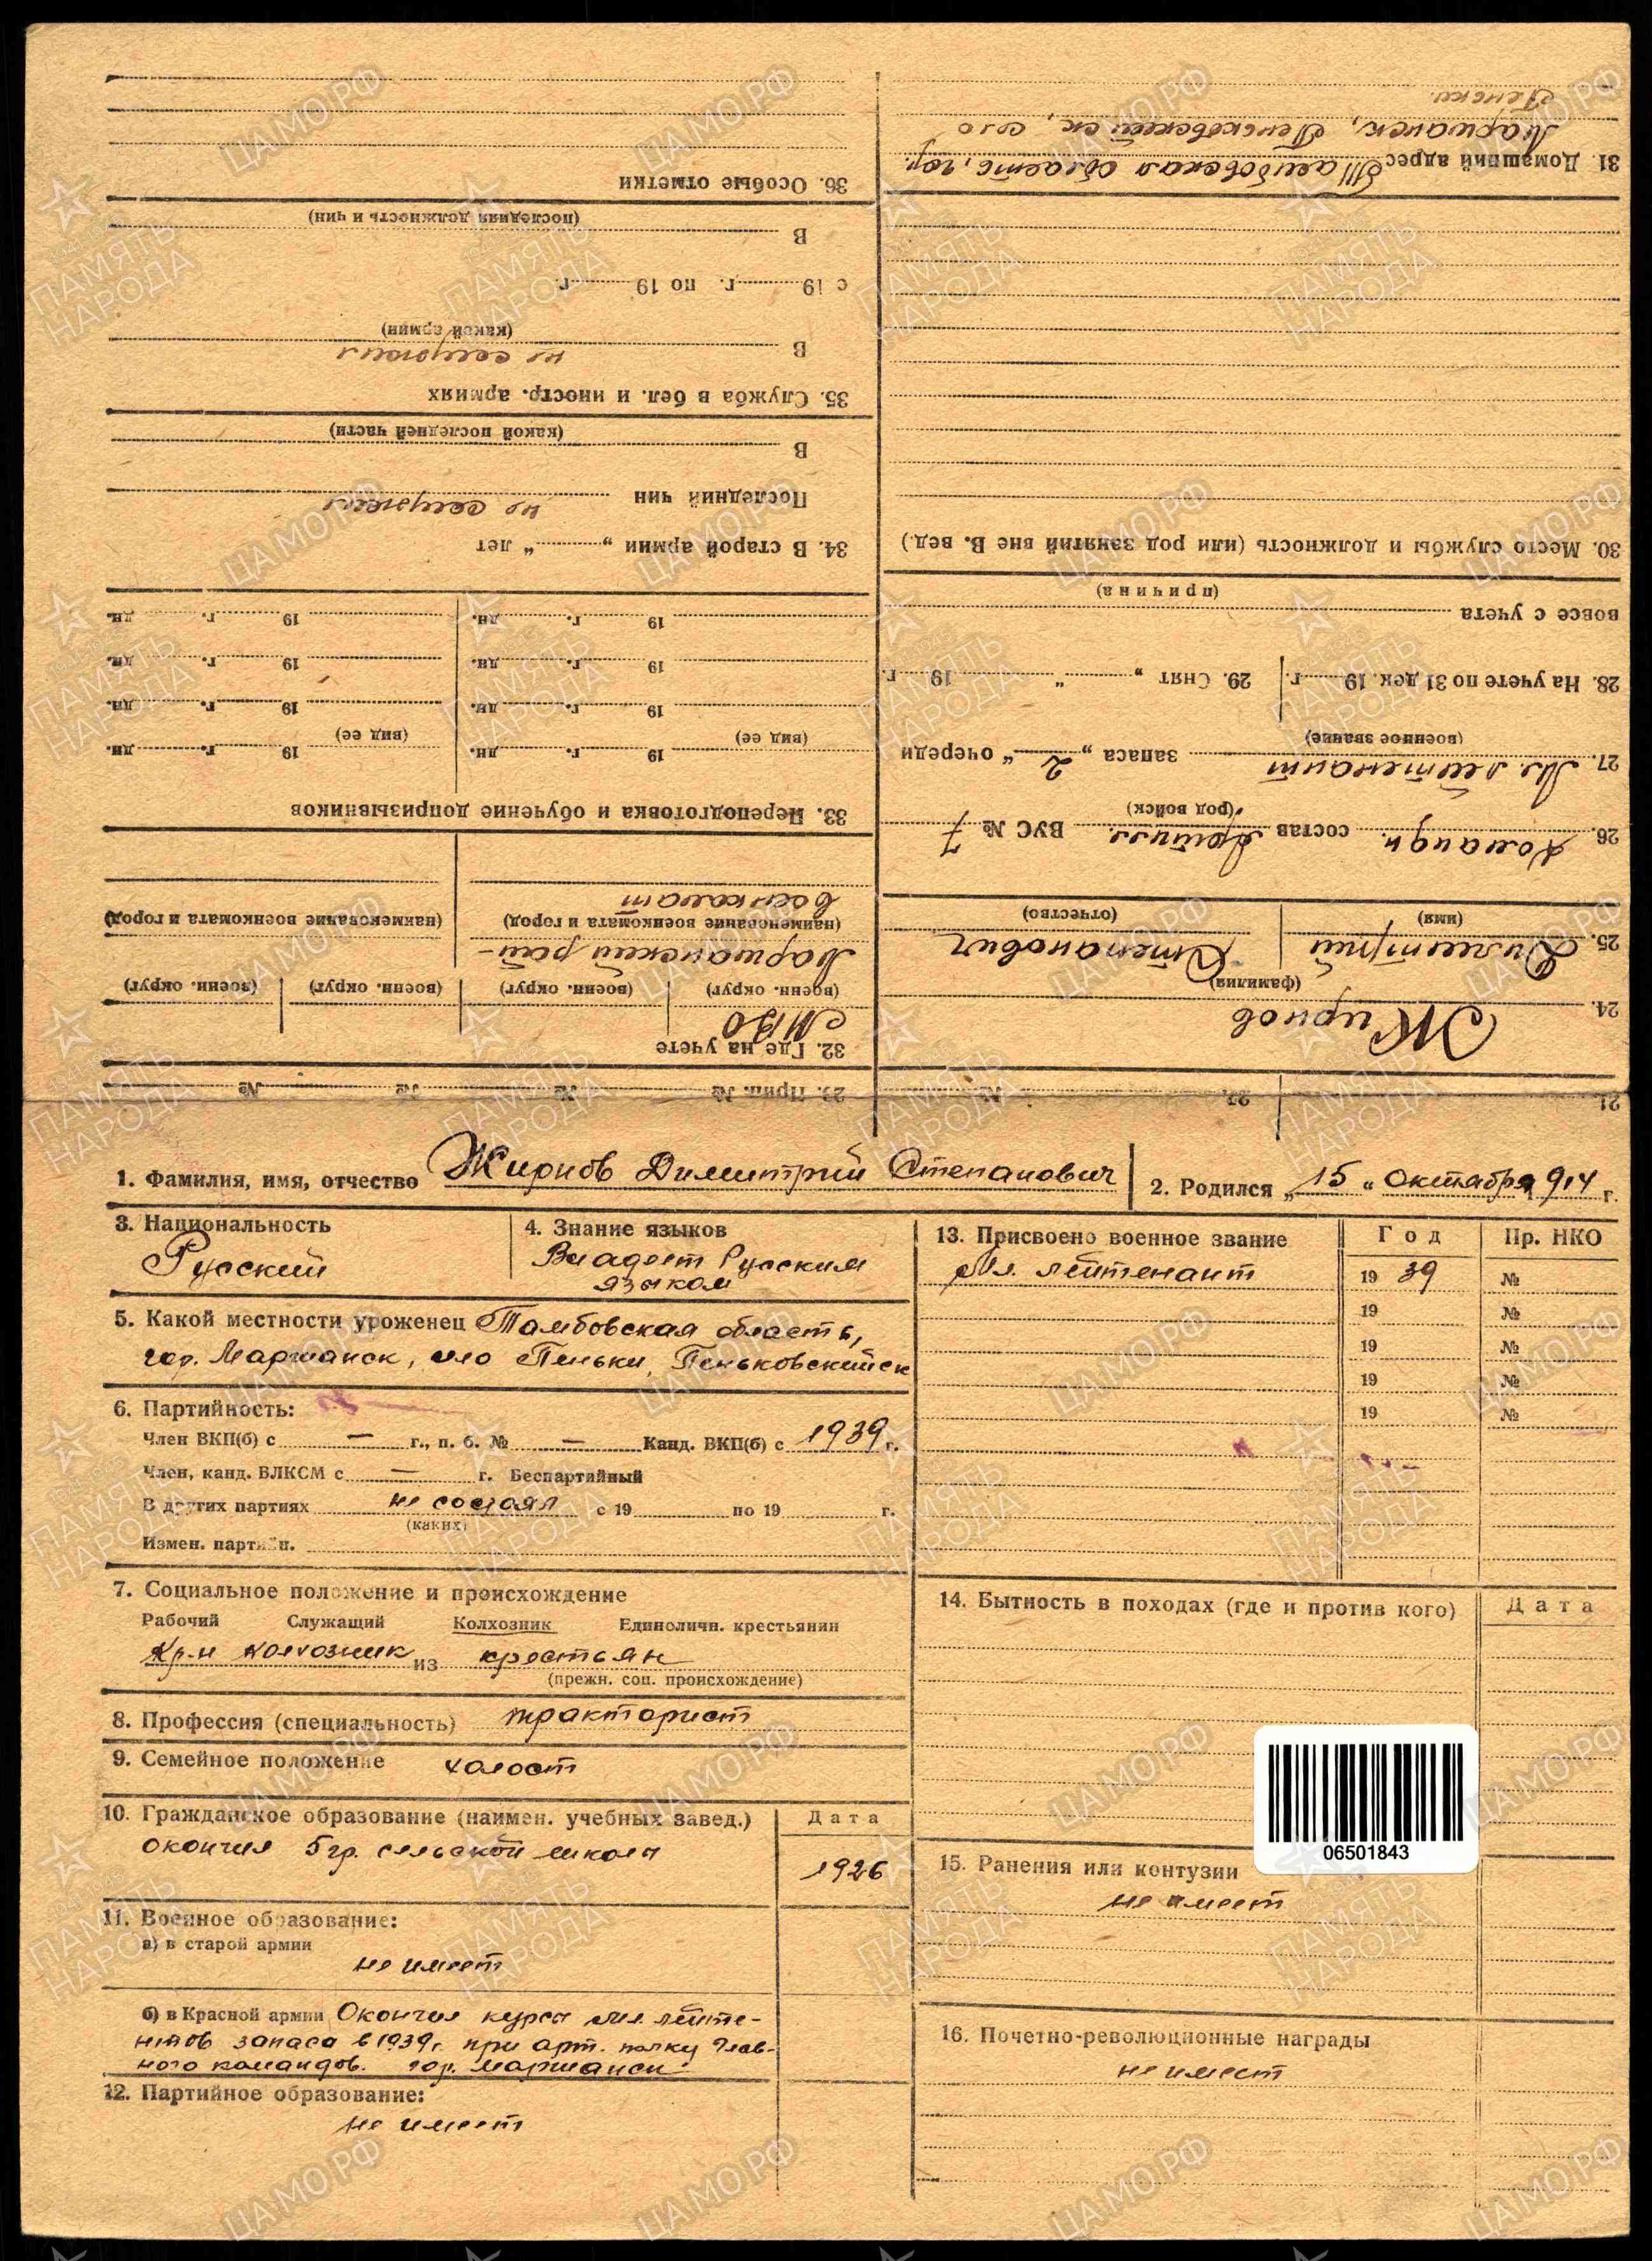 1. Фамилия, имя, отчество Жирнов Димитрий Степанович
2. Родился „15“ октября 1914 г.
3. Национальность
Русский
4. Знание языков
Владеет Русским
языком
5. Какой местности уроженец Тамбовская область,
гор. Моршанск, село Пеньки, Пеньковский с/с
6. Партийность:
Член ВКП(б) с — г., п. б. № — Канд. ВКП(б) с 1939 г.
Член, канд. ВЛКСМ с — г. Беспартийный
В других партиях не состоял с 19 по 19 г.
(каких)
Измен. партийн.
7. Социальное положение и происхождение
Рабочий Служащий Колхозник Единоличн. крестьянин
Кр-н колхозник из крестьян
(прежн. соц. происхождение)
8. Профессия (специальность) тракторист
9. Семейное положение холост
10. Гражданское образование (наимен. учебных завед.) Дата
окончил 5 гр. сельской школы 1926
11. Военное образование:
а) в старой армии
не имеет
б) в Красной армии Окончил курсы мл. лейте-
нтов запаса в 1939 г. при арт. полку
командов. гор. Моршанск
12. Партийное образование:
не имеет
13. Присвоено военное звание Год Пр. НКО
Мл. лейтенант 19 39 №
19 №
19 №
19 №
19 №
14. Бытность в походах (где и против кого) Дата
06501843
15. Ранения или контузии
не имеет
16. Почетно-революционные награды
не имеет
21. 22. №
23. Прип. № № № №
24. Жирнов
(фамилия)
25. Димитрий Степанович
(имя) (отчество)
26. Команди. состав Артилл. ВУС № 7
(род войск)
27. Мл. лейтенант запаса „2“ очереди
(военное звание)
28. На учете по 31 дек. 19 г. 29. Снят „ “ 19 г.
вовсе с учета
(причина)
30. Место службы и должность (или род занятий вне В. вед.)
31. Домашний адрес Тамбовская область, гор.
Моршанск, Пеньковский с/с, село
Пеньки.
32. Где на учете
МВО
(военн. округ) (военн. округ) (военн. округ) (военн. округ)
Моршанский рай-
(наименование военкомата и город) (наименование военкомата и город)
военкомат
33. Переподготовка и обучение допризывников
19 г. дн. 19 г. дн.
(вид ее) (вид ее)
19 г. дн. 19 г. дн.
19 г. дн. 19 г. дн.
19 г. дн. 19 г. дн.
34. В старой армии „ “ лет
Последний чин не служил
В
(какой последней части)
35. Служба в бел. и иностр. армиях
В не служил
(какой армии)
с 19 г. по 19 г.
В
(последняя должность и чин)
36. Особые отметки
ЦАМО.РФ
ПАМЯТЬ
НАРОДА